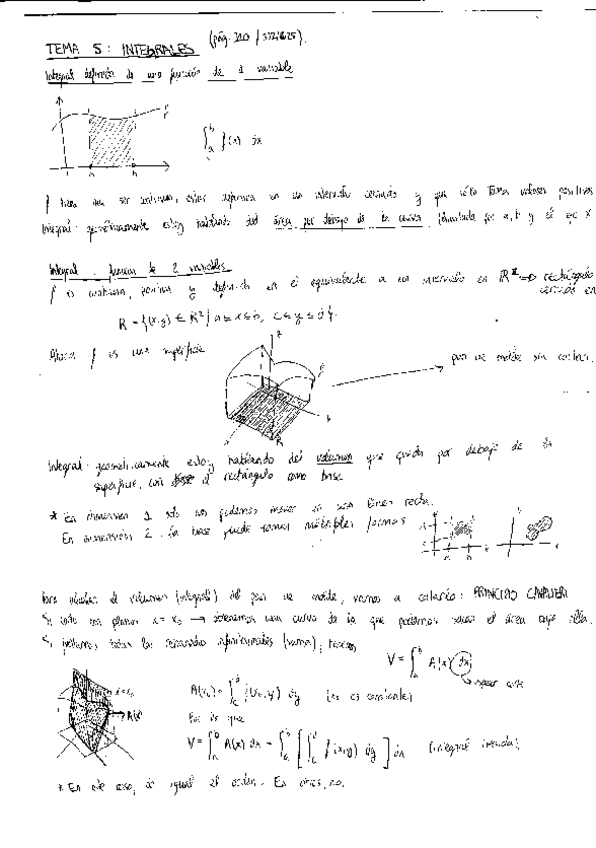 TEMA 5: INTEGRALES (pág. 310
Integral definida de una función de 1 variable
f
a b
∫ₐᵇ f(x) dx
f tiene que ser continua, estar definida en un intervalo cerrado y que sólo tome valores positivos
Integral: geométricamente estoy hablando del área por debajo de la curva, limitada por a, b y el eje x
Integral: función de 2 variables
f es continua, positiva y definida en el equivalente a un intervalo en R² ⇒ rectángulo
cerrado en
R = {(x,y) ∈ R² / a ≤ x ≤ b, c ≤ y ≤ d}.
Ahora f es una superficie
z
R
pan de molde sin cortar.
Integral: geométricamente estoy hablando del volumen que queda por debajo de la
superficie, con el rectángulo como base
* En dimensión 1 solo nos podemos mover en una línea recta.
En dimensión 2 la base puede tomar múltiples formas
Para calcular el volumen (integral) del pan de molde, vamos a cortarlo: PRINCIPIO CAVALIERI
Si corto con planos x = x₀ → obtenemos una curva de la que podemos sacar el área bajo ella.
Si sumamos todas las rebanadas (suma), tenemos
V = ∫ₐᵇ A(x) dx
x = x₀
A(x₀) = ∫ f(x₀,y) dy
Por lo que
V = ∫ₐᵇ A(x) dx = ∫ₐᵇ [∫ f(x,y) dy] dx (integral iterada)
* En este caso, da igual el orden. En otros, no.